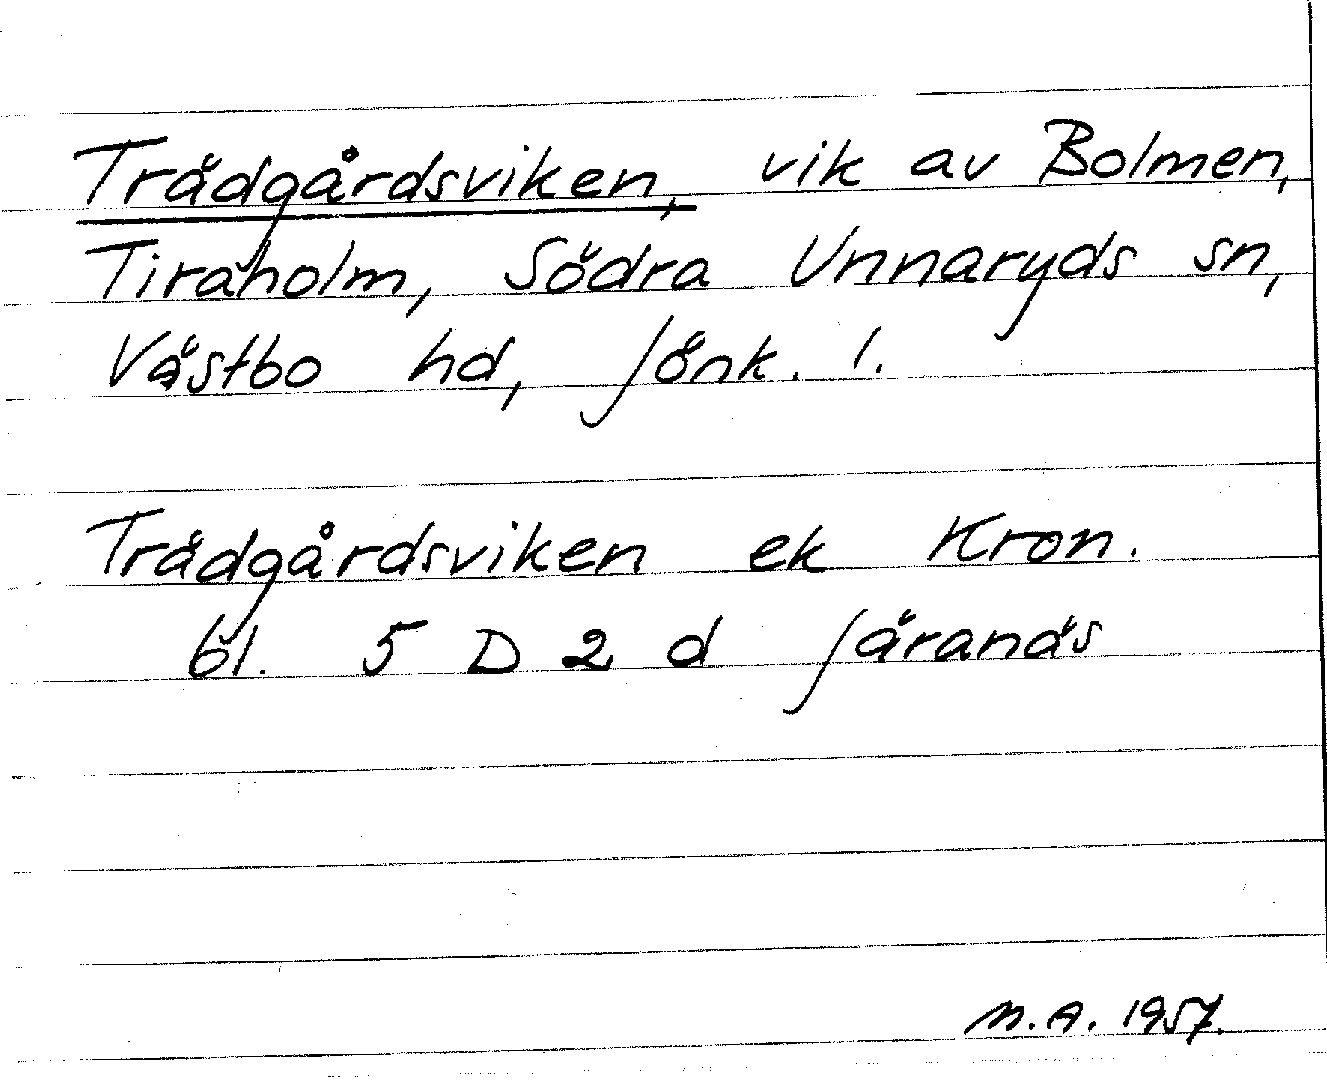 Trädgårdsviken, vik av Bolmen,
Tiraholm, Södra Unnaryds sn,
Västbo hd, Jönk. l.
Trädgårdsviken ek Kron.
bl. 5 D 2 d Järanäs
M.A. 1957.